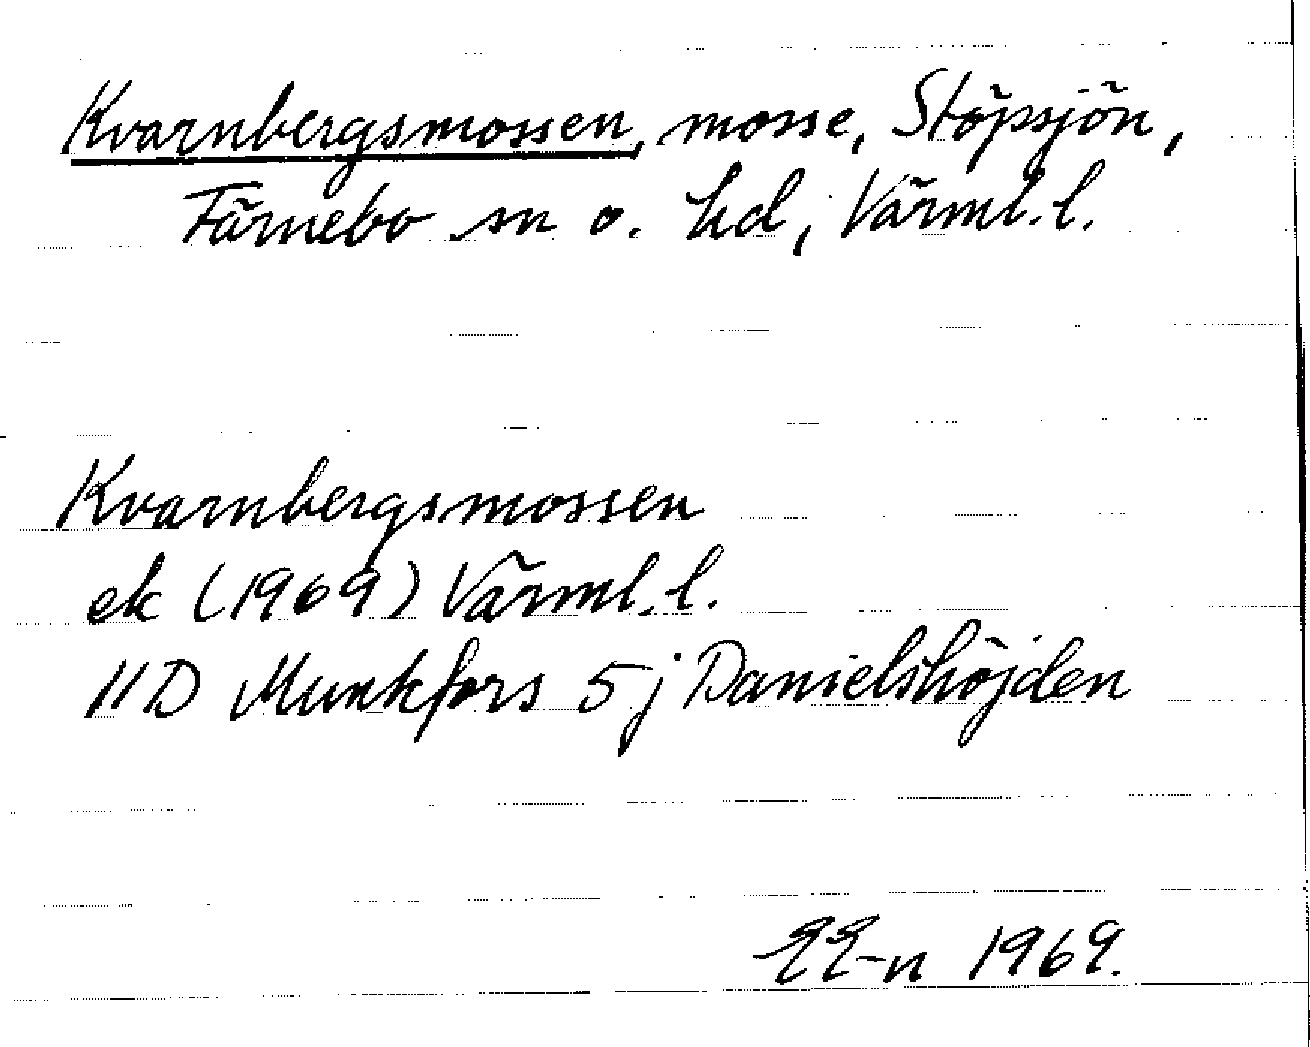 Kvarnbergsmossen, mosse, Stöpsjön,
Färnebo sn o. hd, Värml. l.
Kvarnbergsmossen
ek (1969) Värml. l.
11D Munkfors 5j Danielshöjden
EE-n 1969.